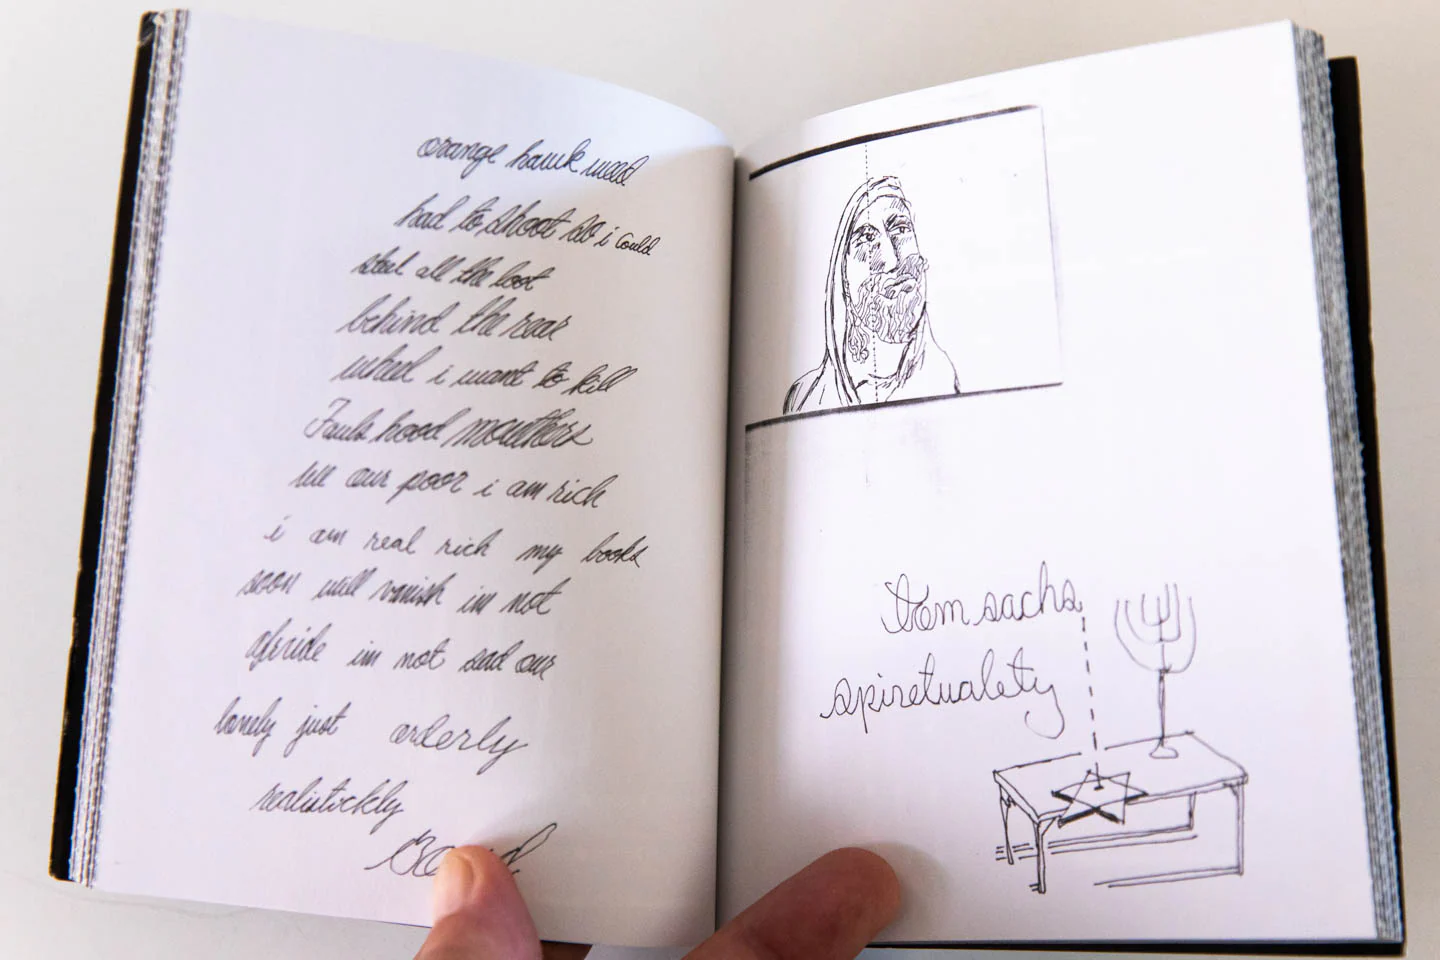 orange hawk weed
had to shoot so i could
steal all the loot
behind the rear
wheel i want to kill
Fauls hood mouthers
we our poor i am rich
i am real rich my books
soon will vanish im not
afride im not sad our
lonely just orderly
realistickly
Tom sachs
spiretualety